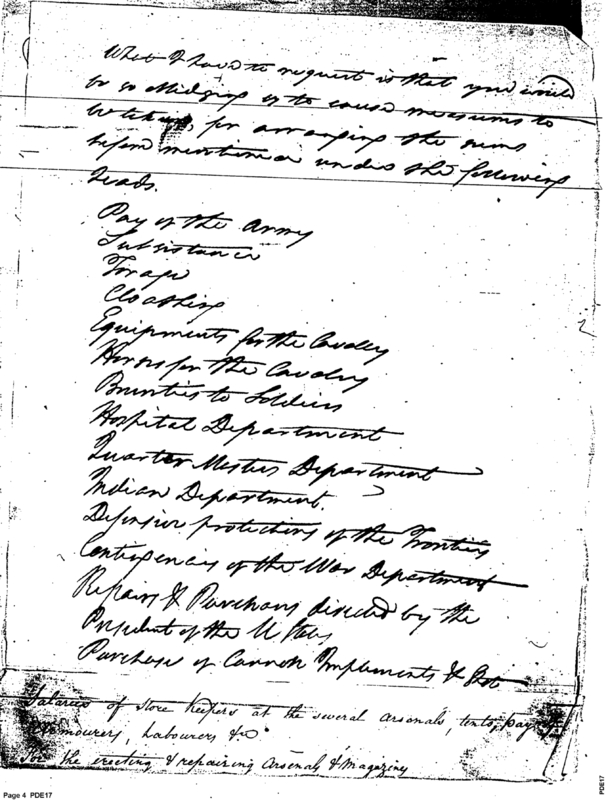 What I have to request is that you would
be so obliging as to cause measures to
be taken, for arranging the sums
before mentioned under the following
heads.
Pay of the Army
Subsistance
Forage
Cloathing
Equipments for the Cavalry
Horses for the Cavalry
Bounties to Soldiers
Hospital Department
Quarter Masters Department
Indian Department.
Defensive protections of the Frontiers
Contingencies of the War Department
Repairs & Purchases directed by the
President of the U States
Purchase of Cannon Implements & Shot
Salaries of store keepers at the several arsenals, rents, pay of
Armourers, Labourers &c
For the erecting & repairing Arsenals & Magazines
Page 4 PDE17
PDE17